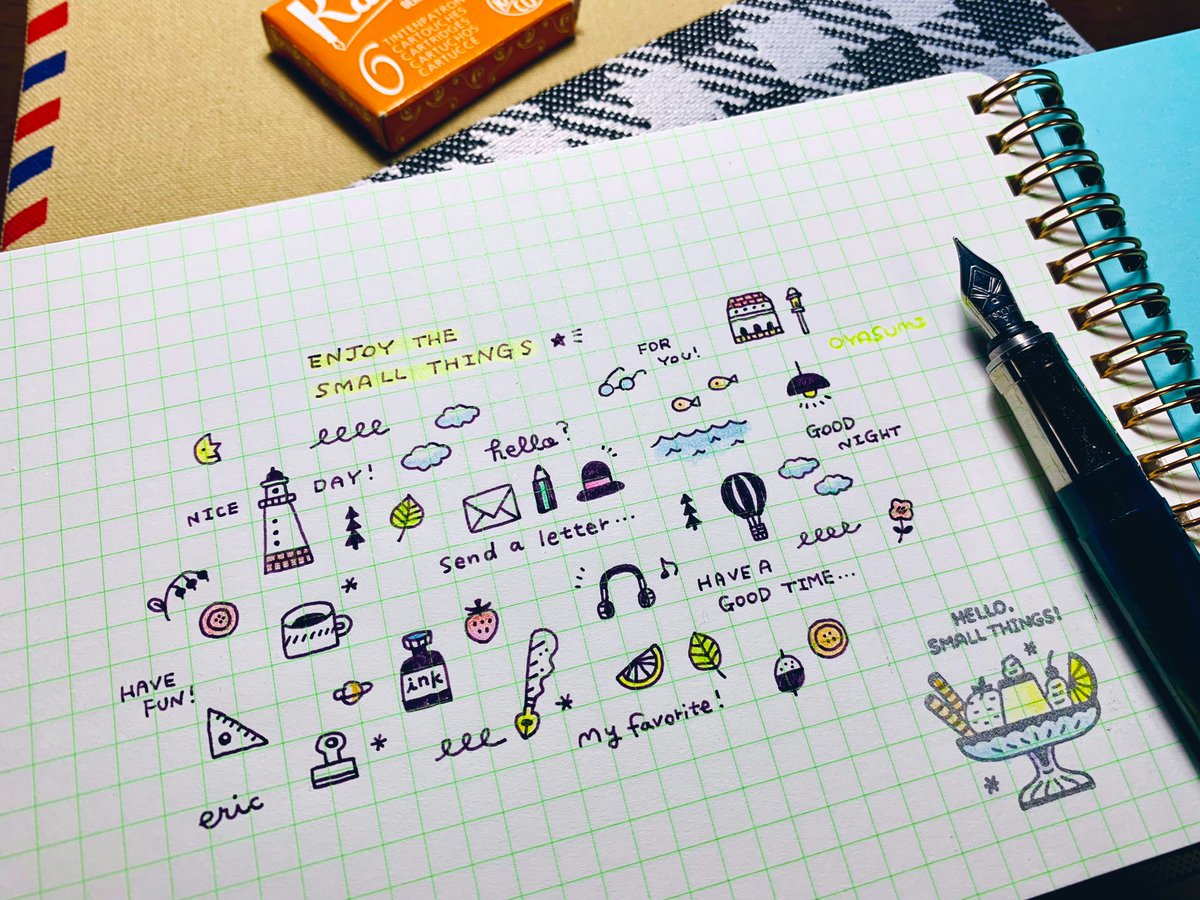 6
TINTENPATRONEN
CARTOUCHES
CARTRIDGES
CARTUCHOS
CARTUCCE
ENJOY THE
SMALL THINGS
FOR
YOU!
OYASUMI
hello?
GOOD
NIGHT
NICE DAY!
send a letter...
HAVE A
GOOD TIME...
HELLO,
SMALL THINGS!
ink
HAVE
FUN!
My favorite!
eric